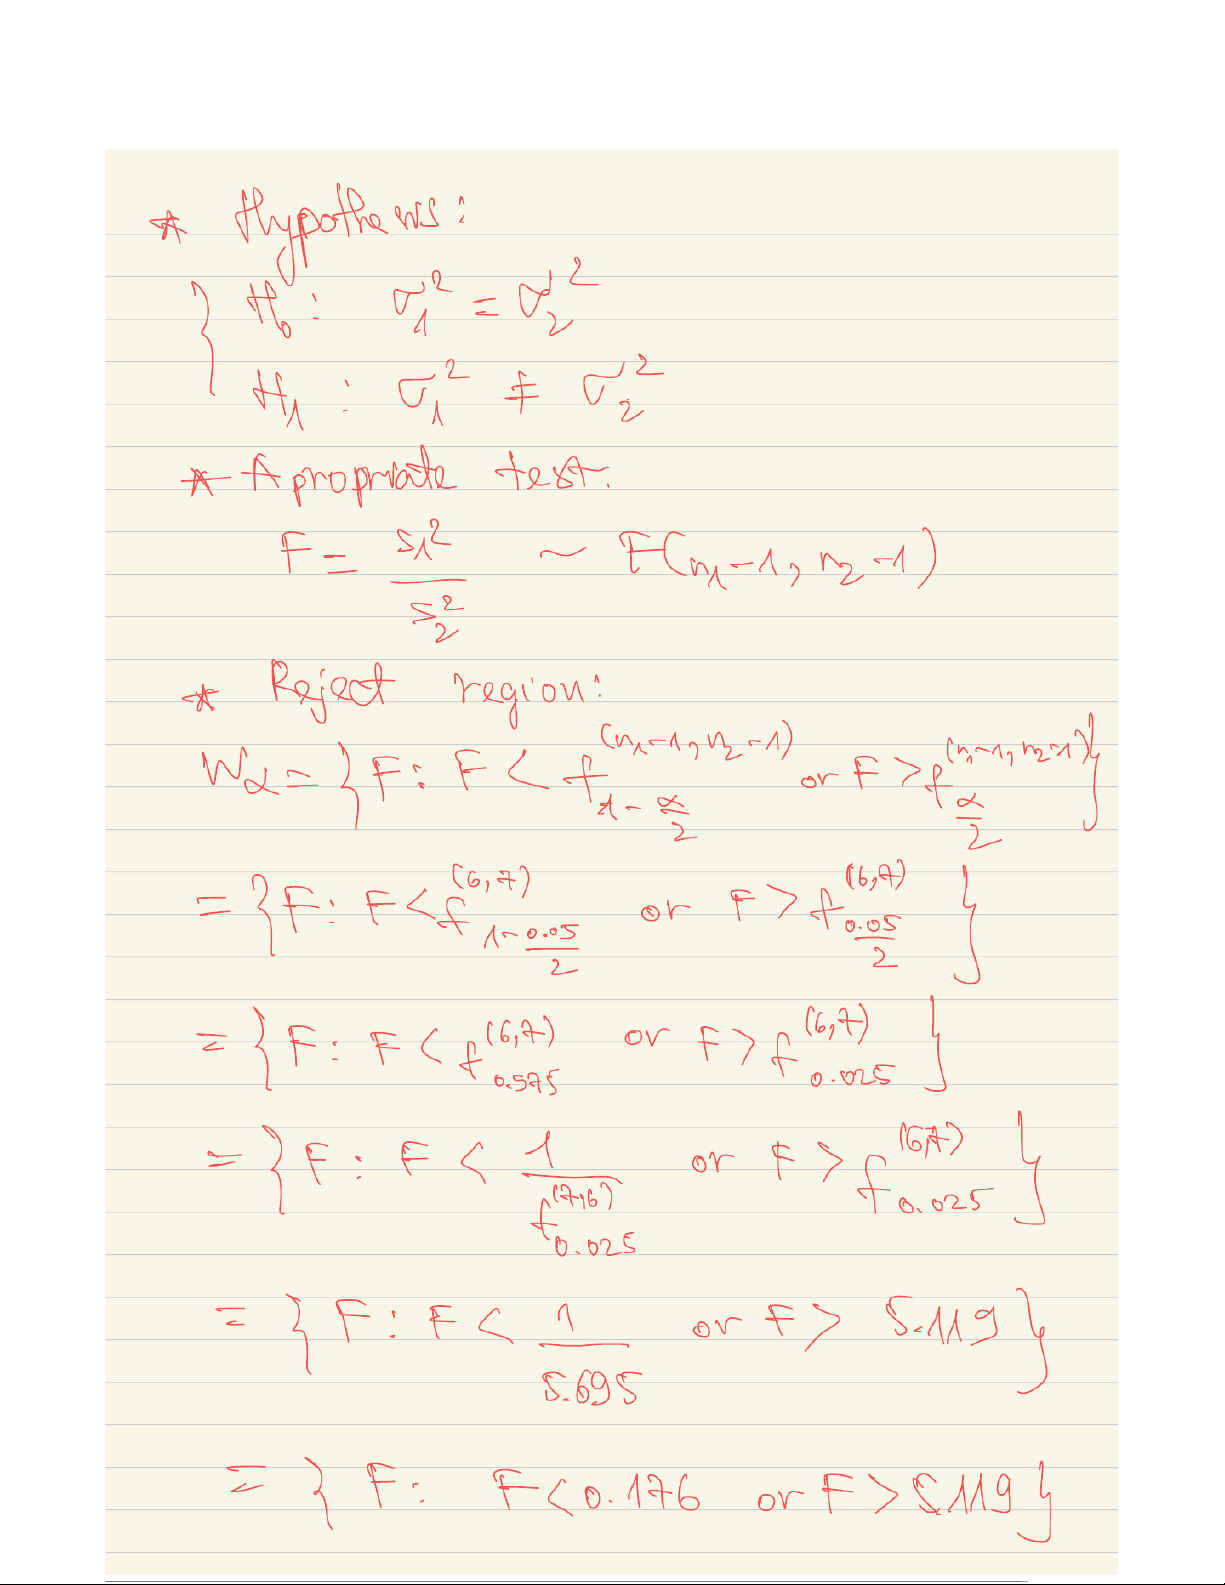 * Hypothesis:
{ H₀ : σ₁² = σ₂²
H₁ : σ₁² ≠ σ₂²
* Apropriate test.
F = s₁² / s₂² ~ F(n₁-1, n₂-1)
* Reject region:
Wα = { F : F < f_{1-α/2}^{(n₁-1, n₂-1)} or F > f_{α/2}^{(n₁-1, n₂-1)} }
= { F : F < f_{1-0.05/2}^{(6,7)} or F > f_{0.05/2}^{(6,7)} }
= { F : F < f_{0.975}^{(6,7)} or F > f_{0.025}^{(6,7)} }
= { F : F < 1 / f_{0.025}^{(7,6)} or F > f_{0.025}^{(6,7)} }
= { F : F < 1 / 5.695 or F > 5.119 }
= { F : F < 0.176 or F > 5.119 }